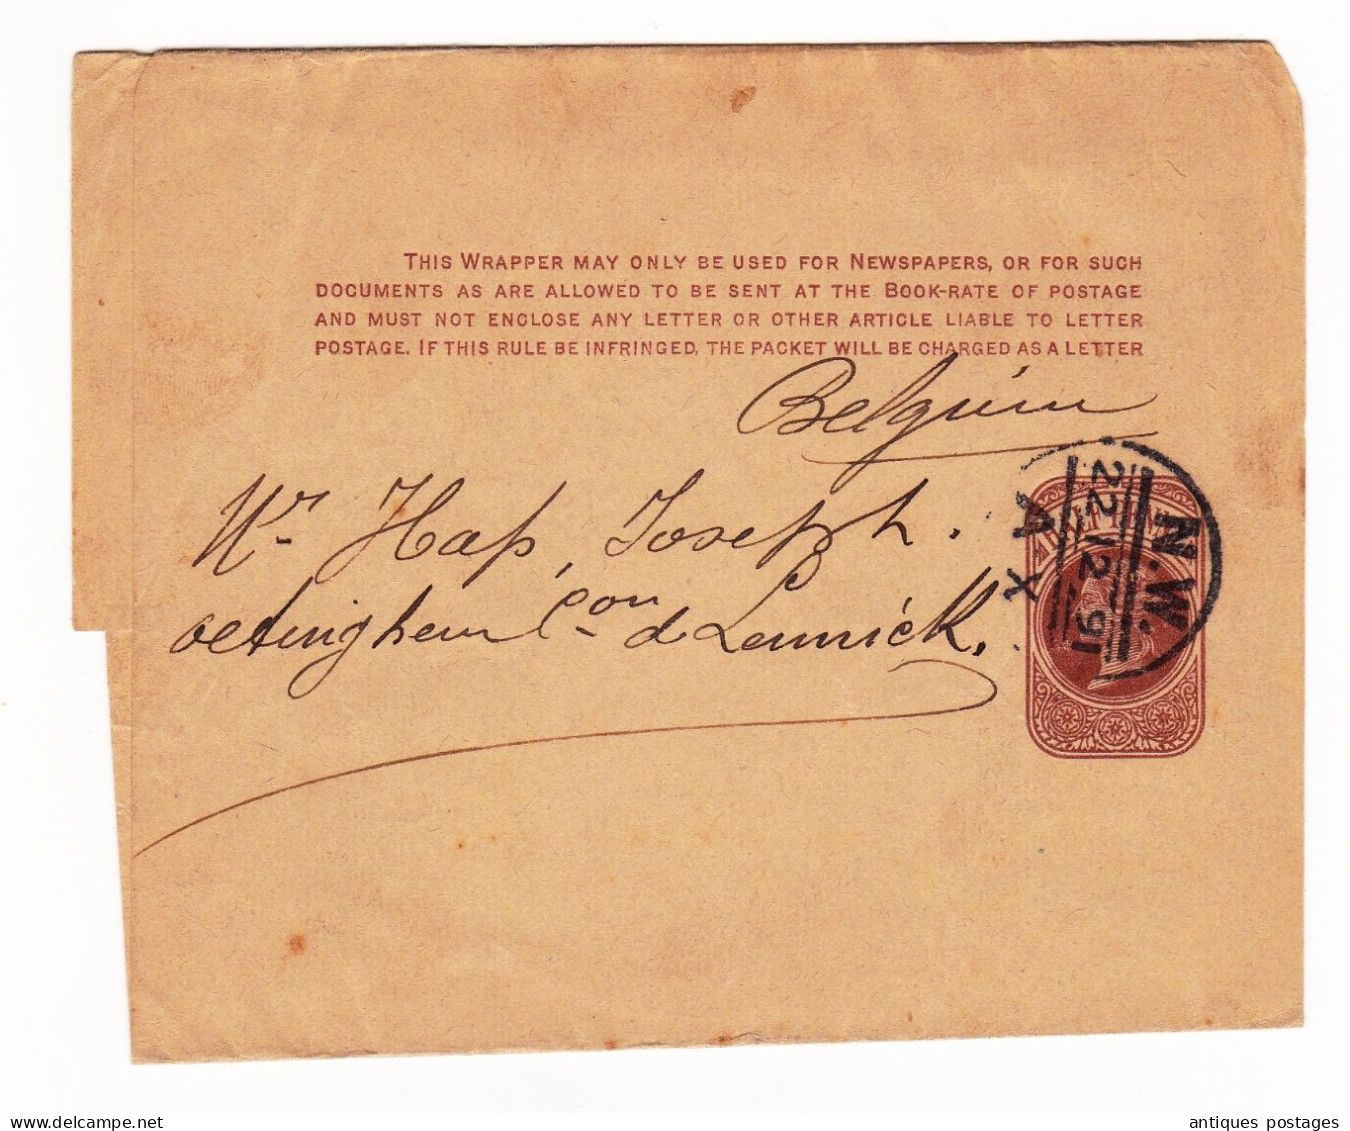 THIS WRAPPER MAY ONLY BE USED FOR NEWSPAPERS, OR FOR SUCH
DOCUMENTS AS ARE ALLOWED TO BE SENT AT THE BOOK-RATE OF POSTAGE
AND MUST NOT ENCLOSE ANY LETTER OR OTHER ARTICLE LIABLE TO LETTER
POSTAGE. IF THIS RULE BE INFRINGED, THE PACKET WILL BE CHARGED AS A LETTER
Belgium
Mr Hap, Joseph.
oetinghem Con d Lennick.
N.W.
22 12 91
A X
delcampe.net
antiques postages